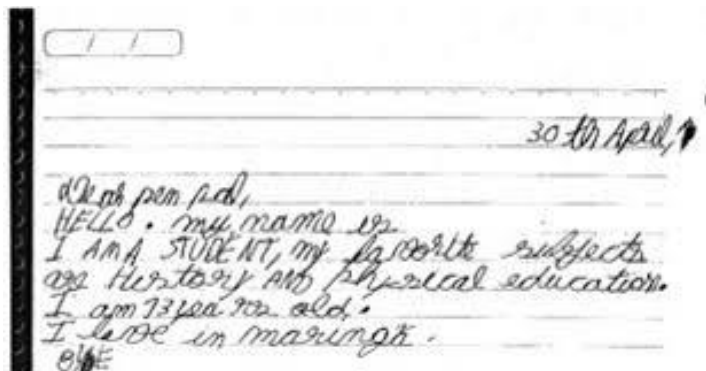 / /
30 th April,
dear pen pal,
HELLO. my name is
I AM A STUDENT, my favorite subjects
are History AND physical education.
I am 13 years old.
I live in maringá.
BYE